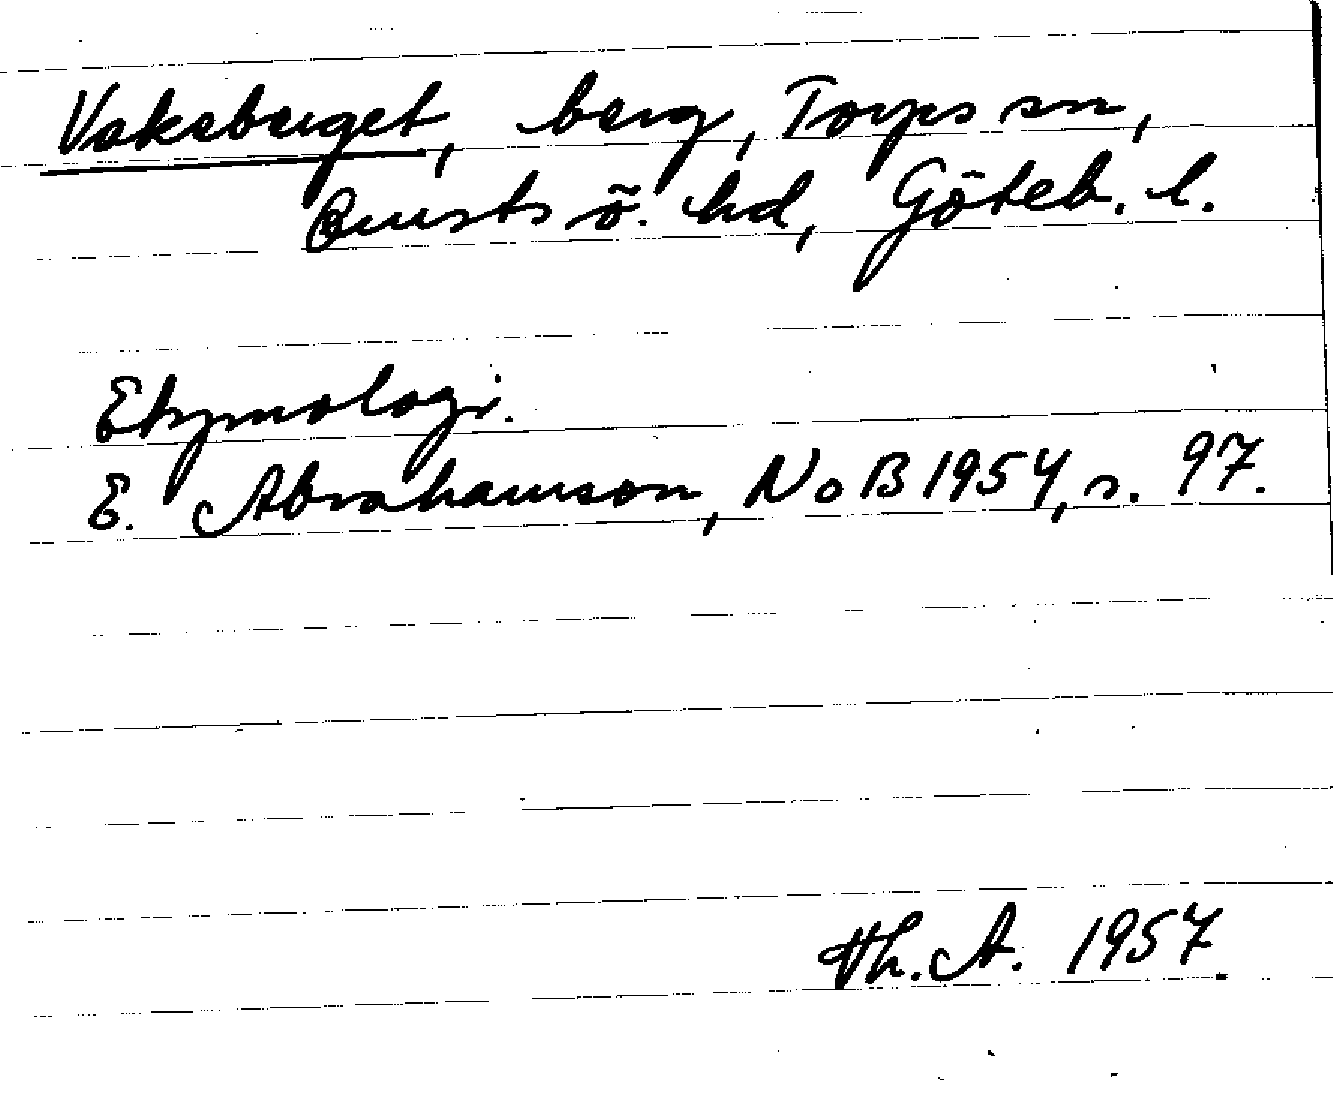 Vaksberget, berg, Torps sn,
ö. hd, Göteb. l.
Etymologi.
E. Abrahamson, NoB 1954, s. 97.
Th. A. 1957.